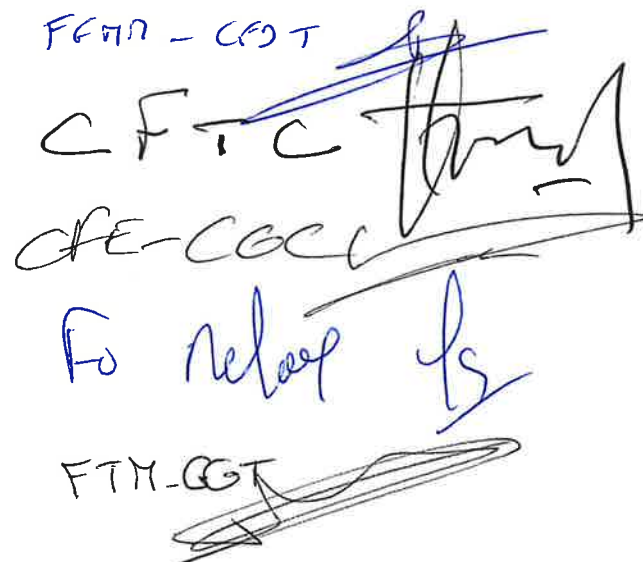 FGMM - CFDT
CFTC
CFE-CGC
Fo Métaux
FTM-CGT